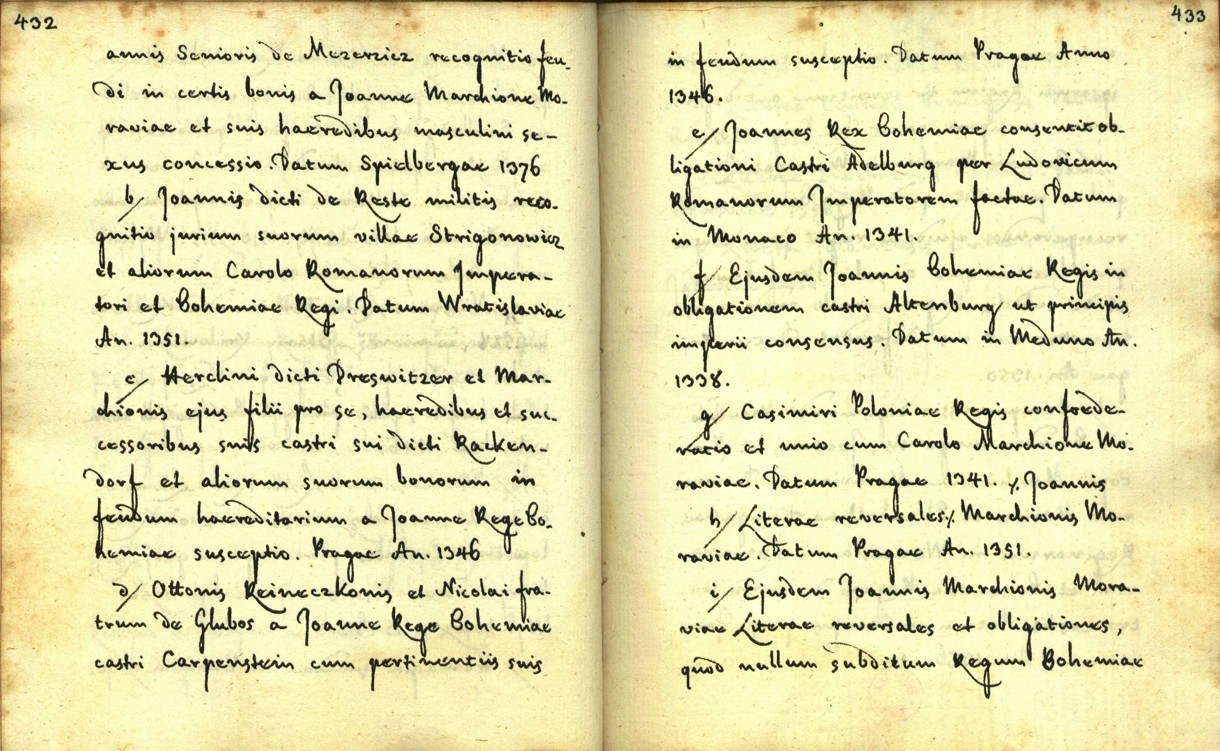 432
annis Senioris de Mezerzicz recognitio feu-
di in certis bonis a Joanne Marchione Mo-
raviae et suis haeredibus masculini se-
xus concessio. Datum Spielbergae 1376
b/ Joannis dicti de Reste militis reco-
gnitio jurium suorum villae Strigonowicz
et aliorum Carolo Romanorum Impera-
tori et Bohemiae Regi. Datum Wratislaviae
An. 1351.
c/ Herclini dicti Dreswitzer et Mar-
chionis ejus filii pro se, haeredibus et suc-
cessoribus suis castri sui dicti Racken-
dorf et aliorum suorum bonorum in
feudum haereditarium a Joanne Rege Bo-
hemiae susceptio. Pragae An. 1346
d/ Ottonis Reineczkonis et Nicolai fra-
trum de Glubos a Joanne Rege Bohemiae
castri Carpenstein cum pertinentiis suis
433
in feudum susceptio. Datum Pragae Anno
1346.
e/ Joannes Rex Bohemiae consentit ob-
ligationi Castri Adelburg per Ludovicum
Romanorum Imperatorem factae. Datum
in Monaco An. 1341.
f/ Ejusdem Joannis Bohemiae Regis in
obligationem castri Altenburg ut principis
imperii consensus. Datum in Meduno An.
1338.
g/ Casimiri Poloniae Regis confoede-
ratio et unio cum Carolo Marchione Mo-
raviae. Datum Pragae 1341. ⁒ Joannis
h/ Literae reversales ⁒ Marchionis Mo-
raviae. Datum Pragae An. 1351.
i/ Ejusdem Joannis Marchionis Mora-
viae Literae reversales et obligationes,
quod nullum subditum Regum Bohemiae